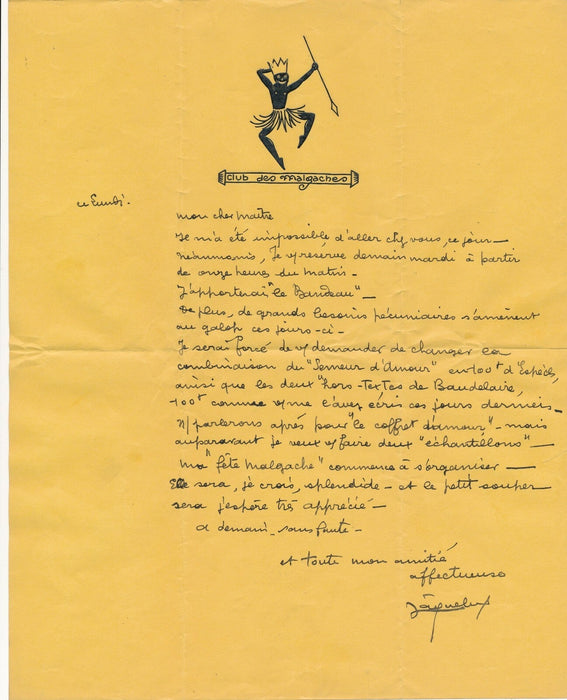 Club des Malgaches
ce Lundi.
Mon cher Maître
Il m'a été impossible d'aller chez vous, ce jour—
néanmoins, je v/ réserve demain mardi à partir
de onze heures du matin—
J'apporterai "le Bandeau"—
De plus, de grands besoins pécuniaires s'amènent
au galop ces jours-ci—
Je serai forcé de v/ demander de changer la
combinaison du "Semeur d'Amour" en 100t d'Espèces,
ainsi que les deux "hors-textes de Baudelaire,
100t comme v/ me l'avez écris ces jours derniers—
N/ parlerons après pour "le coffret d'amour"—mais
auparavant je veux v/ faire deux "échantillons"—
Ma "fête Malgache" commence à s'organiser—
Elle sera, je crois, splendide—et le petit souper
sera j'espère très apprécié—
a demain—sans faute—
et toute mon amitié
affectueuse